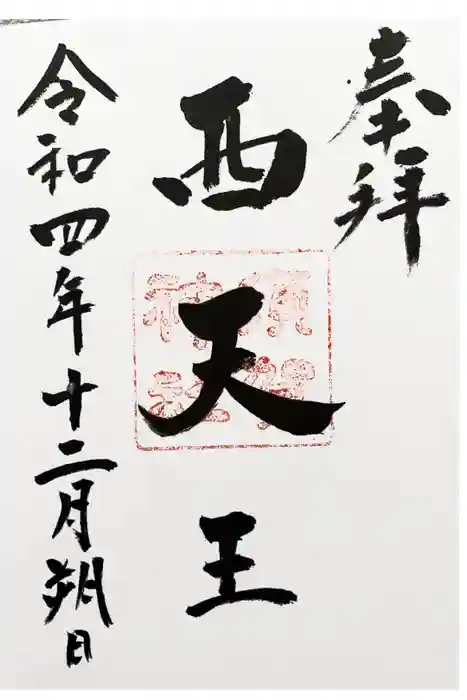 奉拝
西天王
令和四年十二月朔日